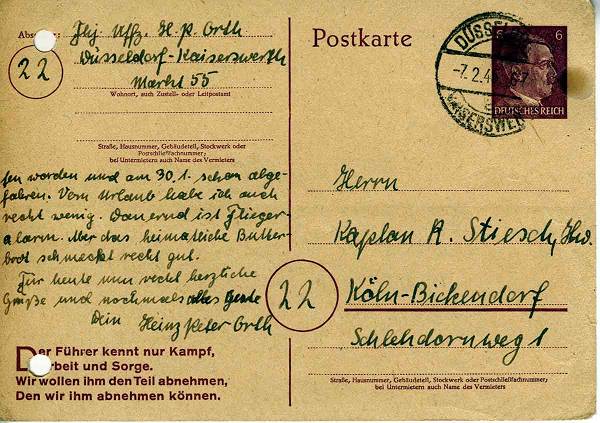 Fhj. Uffz. H. P. Orth
Düsseldorf-Kaiserswerth
Markt 55
22
Wohnort, auch Zustell- oder Leitpostamt
Straße, Hausnummer, Gebäudeteil, Stockwerk oder
Postschließfachnummer;
bei Untermietern auch Name des Vermieters
sen worden und am 30.1. schon abge-
fahren. Vom Urlaub habe ich auch
recht wenig. Dauernd ist Flieger-
alarm. Aber das heimatliche Butter-
brot schmeckt recht gut.
Für heute nun recht herzliche
Grüße und nochmals alles Gute
Dein Heinz Peter Orth
Der Führer kennt nur Kampf,
Arbeit und Sorge.
Wir wollen ihm den Teil abnehmen,
Den wir ihm abnehmen können.
Postkarte
6
DEUTSCHES REICH
Herrn
Kaplan A. Stiesch, Hw.
22
Köln-Bickendorf
Schlehdornweg 1
Straße, Hausnummer, Gebäudeteil, Stockwerk oder Postschließfachnummer;
bei Untermietern auch Name des Vermieters